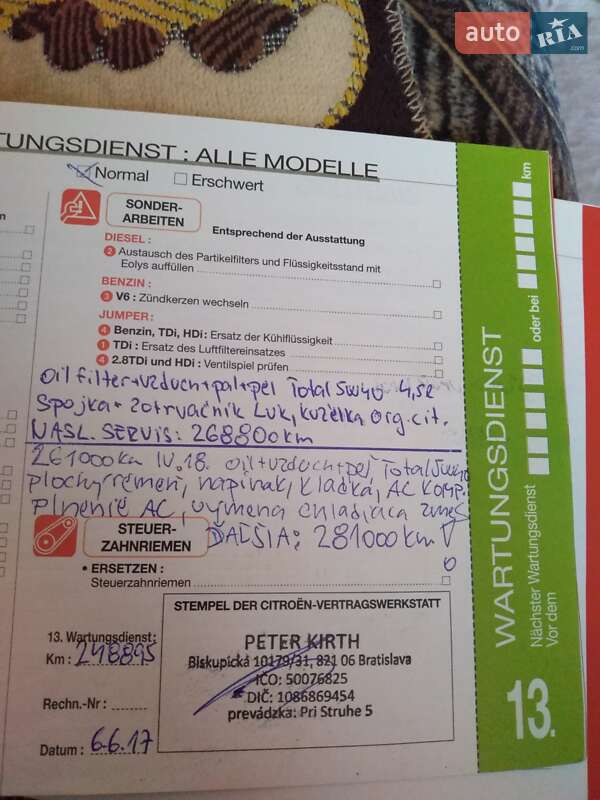 auto RIA.com
TUNGSDIENST : ALLE MODELLE
Normal Erschwert
SONDER-
ARBEITEN
Entsprechend der Ausstattung
DIESEL :
2 Austausch des Partikelfilters und Flüssigkeitsstand mit
Eolys auffüllen
BENZIN :
3 V6 : Zündkerzen wechseln
JUMPER:
4 Benzin, TDi, HDi: Ersatz der Kühlflüssigkeit
1 TDi : Ersatz des Luftfiltereinsatzes
4 2.8TDi und HDi : Ventilspiel prüfen
Oil filter+vzduch+pal+pel Total 5w40 4,5l
Spojka+zotrvačník Luk, kuzelka org. cit.
NASL. SERVIS: 268800km
261000km IV.18. oil+vzduch+pel Total 5w40
plochyremen, napinak, kladka, AC KOMP.
plnenie AC, vymena chladiaca zmes
STEUER-
ZAHNRIEMEN
ĎALSIA: 281000km
• ERSETZEN :
Steuerzahnriemen
STEMPEL DER CITROËN-VERTRAGSWERKSTATT
PETER KIRTH
Biskupická 10179/31, 821 06 Bratislava
IČO: 50076825
DIČ: 1086869454
prevádzka: Pri Struhe 5
13. Wartungsdienst:
Km : 248895
Rechn.-Nr :
Datum : 6.6.17
WARTUNGSDIENST
13.
Nächster Wartungsdienst
Vor dem oder bei km